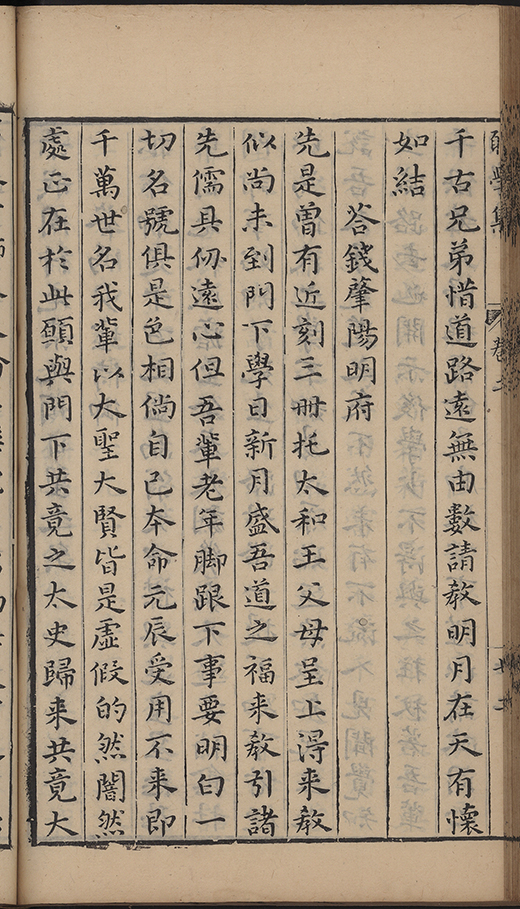 千古兄弟惜道路遠無由數請教明月在天有懷
如結
答錢肇陽明府
先是曾有近刻三冊托太和王父母呈上得來教
似尚未到門下學日新月盛吾道之福來教引諸
先儒具仞遠心但吾輩老年脚跟下事要明白一
切名號俱是色相倘自己本命元辰受用不來即
千萬世名我輩以大聖大賢皆是虛假的然闇然
處正在於此願與門下共竟之太史歸來共竟大